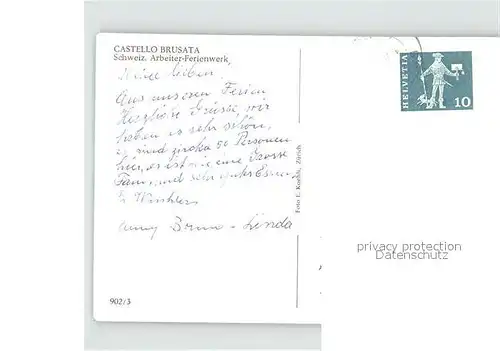 CASTELLO BRUSATA
Schweiz. Arbeiter-Ferienwerk
lieben
Aus unseren Ferien
Herzliche Grüsse, wir
haben es sehr schön,
es sind zirka 50 Personen
hier, es ist wie eine grosse
Fam, und sehr gutes Essen

Bruno - Linda
902/3
Foto E. Zürich
HELVETIA
10
privacy protection
Datenschutz